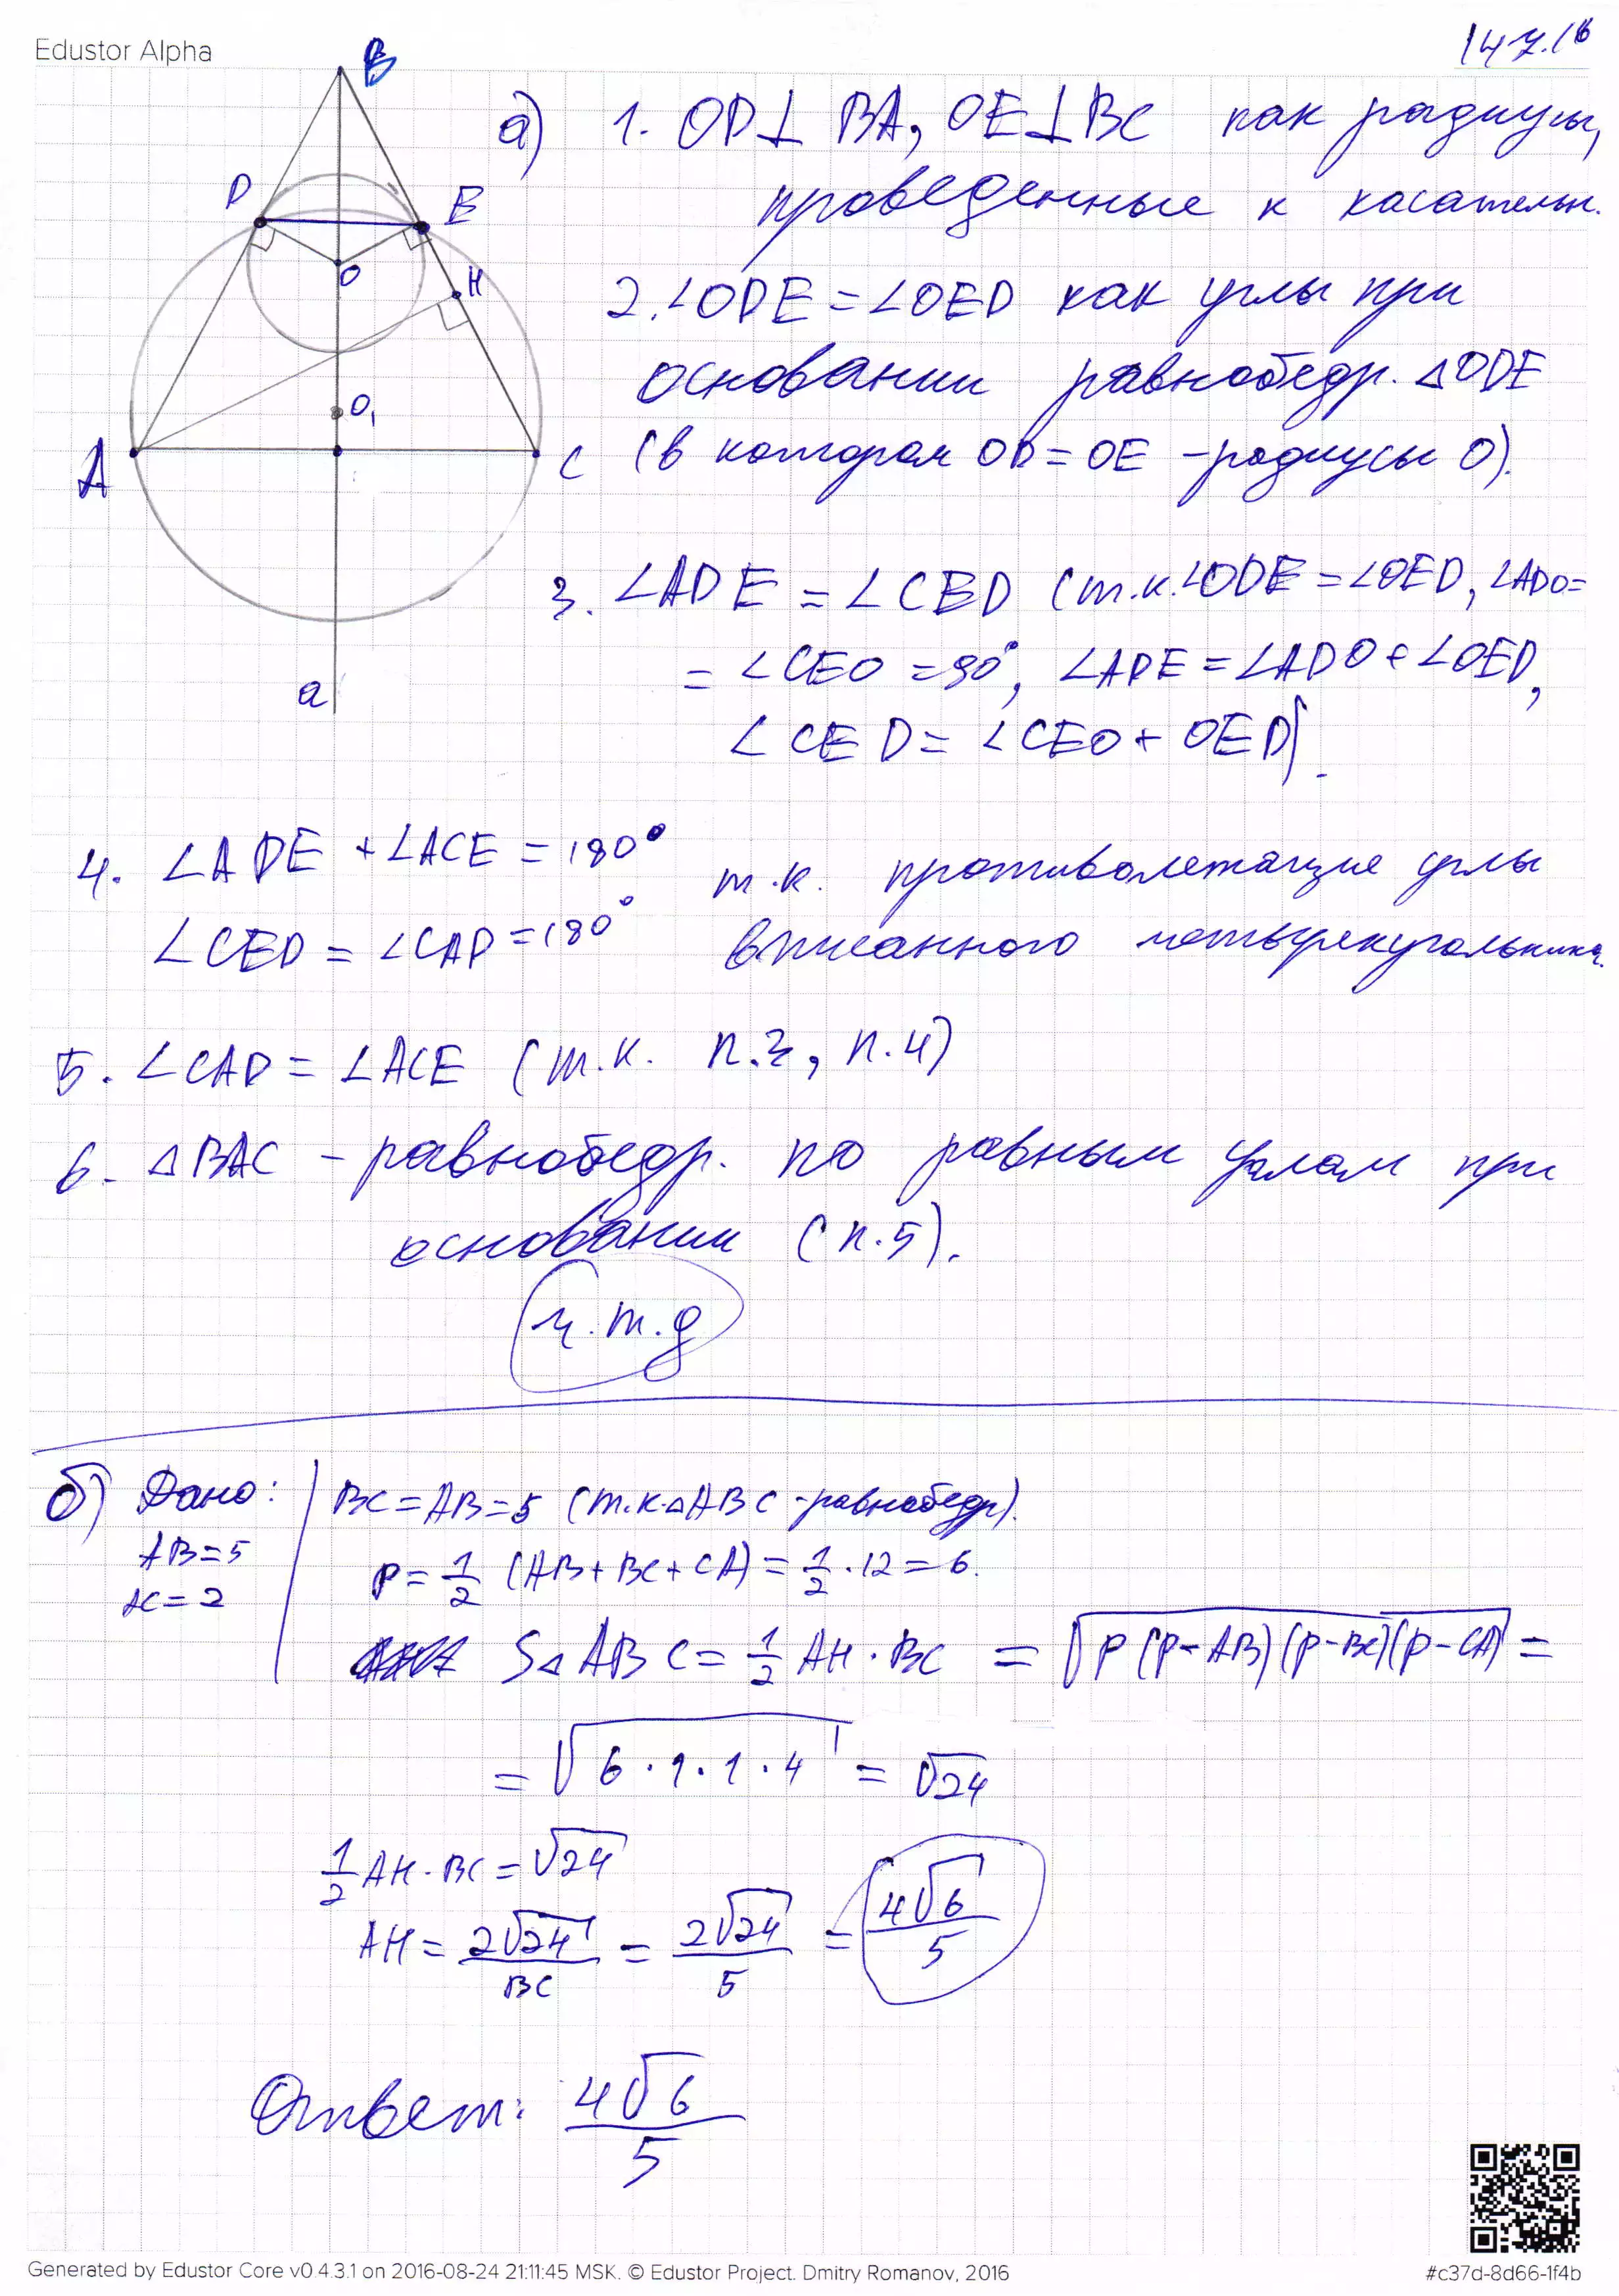 Edustor Alpha
147.16
B
D
E
O
H
O₁
A
C
a
а) 1. OD⊥ BA, OE⊥BC как радиусы,
проведенные к касательн.
2. ∠ODE = ∠OED как углы при
основании равнобедр. △ODE
(в котором OD = OE - радиусы O).
3. ∠ADE = ∠CED (т.к. ∠ODE = ∠OED, ∠ADO=
= ∠CEO = 90°, ∠ADE = ∠ADO + ∠OED,
∠CED = ∠CEO + OED).
4. ∠ADE + ∠ACE = 180° т.к. противолежащие углы
∠CED = ∠CAD = 180° вписанного четырехугольника.
5. ∠CAD = ∠ACE (т.к. п.3, п.4)
6. △BAC - равнобедр. по равным углам при
основании (п.5).
ч.т.д
б) Дано: BC = AB = 5 (т.к. △ABC - равнобедр).
AB = 5
p = 1/2 (AB + BC + CA) = 1/2 · 12 = 6.
AC = 2
S△ABC = 1/2 AH · BC = √(p(p-AB)(p-BC)(p-CA)) =
= √(6·1·1·4) = √24
1/2 AH · BC = √24
AH = 2√24/BC = 2√24/5 = 4√6/5
Ответ: 4√6/5
Generated by Edustor Core v0.4.3.1 on 2016-08-24 21:11:45 MSK. © Edustor Project. Dmitry Romanov, 2016
#c37d-8d66-1f4b